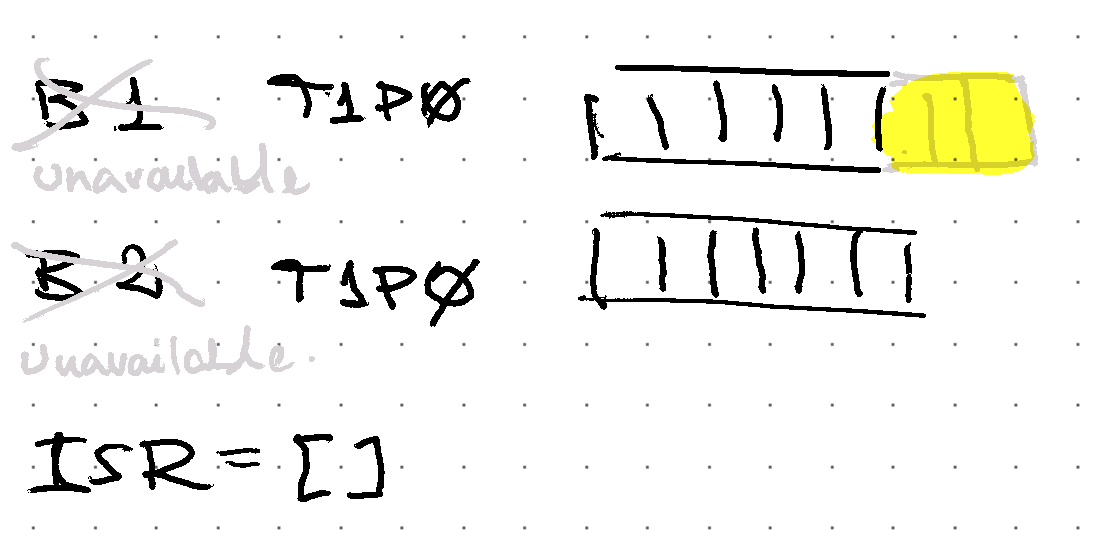 B 1 T1PØ
unavailable
B 2 T1PØ
unavailable.
ISR = [ ]